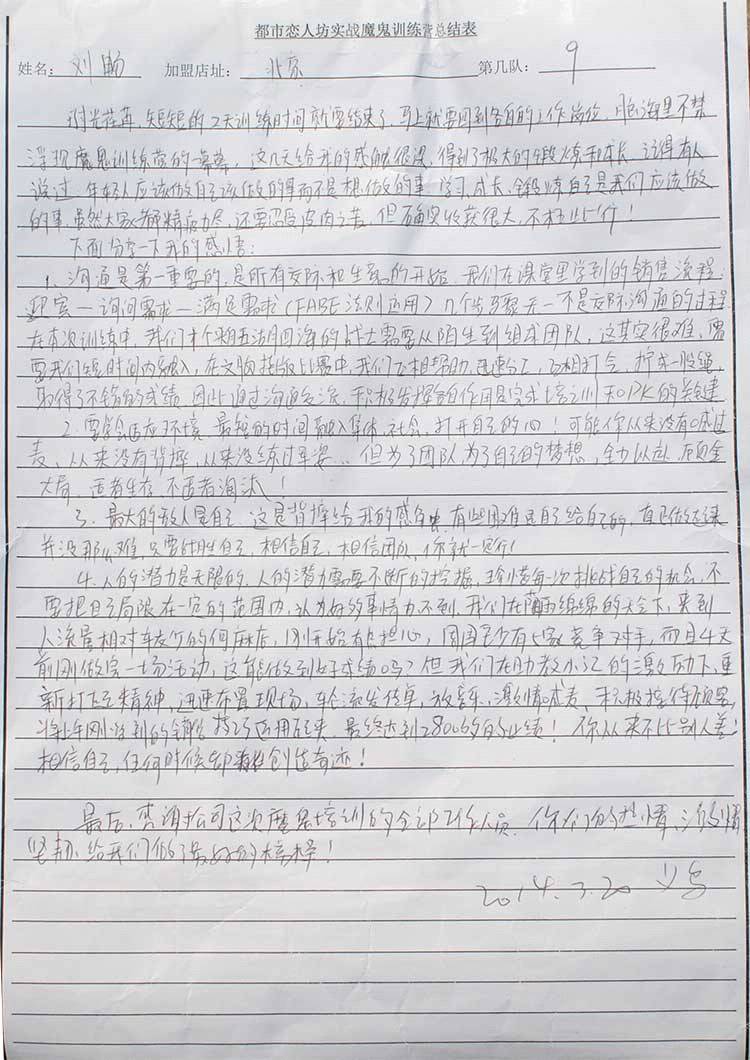 都市恋人坊实战魔鬼训练营总结表
姓名： 刘畅 加盟店址： 北京 第几队： 9
时光荏苒，短短的2天训练时间就要结束了，马上就要回到各自的工作岗位，脑海里不禁
浮现魔鬼训练营的一幕幕，这几天给我的感触很深，得到了极大的锻炼和成长，记得有人
说过，年轻人应该做自己该做的事而不是想做的事，学习、成长、锻炼自己是我们应该做
的事，虽然大家都精疲力尽，还要忍受皮肉之苦，但确实收获很大，不枉此行！
下面分享一下我的感悟：
1、沟通是第一重要的，是所有交际和生意的开始，我们在课堂里学到的销售流程：
迎宾—询问需求—满足需求（FABE法则运用）几个步骤无一不是交际沟通的过程
在本次训练中，我们来自五湖四海的战士需要从陌生到组成团队，这其实很难，需
要我们短时间内融入，在文胸排版比赛中，我们互相帮助，迅速分工，互相打气，拧成一股绳，
取得了不错的成绩，因此通过沟通交流，积极发挥各自作用是完成培训和PK的关键
2、要学会适应环境，最短的时间融入集体、社会，打开自己的心！可能你从来没有喊过
麦，从来没有背摔，从来没练过军姿，但为了团队，为了自己的梦想，全力以赴，顾全
大局，适者生存，不适者淘汰！
3、最大的敌人是自己，这是背摔给我的感触，有些困难是自己给自己的，真正做起来
并没那么难，只要战胜自己，相信自己，相信团队，你就一定行！
4、人的潜力是无限的，人的潜力需要不断的挖掘，珍惜每一次挑战自己的机会，不
要把自己局限在一定的范围内，认为好的事情办不到，我们在阴雨绵绵的天气下，来到
人流量相对较少的何麻店，刚开始有些担心，周围至少有七家竞争对手，而且4天
前刚做完一场活动，这能做到好成绩吗？但我们在助教小记的激励下，重
新打起精神，迅速布置现场，轮流发传单，放音乐，激情喊麦，积极接待顾客，
将上午刚学到的销售技巧运用起来，最终达到2800多的业绩！你从来不比别人差！
相信自己，任何时候都能创造奇迹！
最后，感谢公司这次魔鬼培训的全部工作人员，你们的热情、激情
坚韧，给我们做了最好的榜样！
2014.3.20 义乌